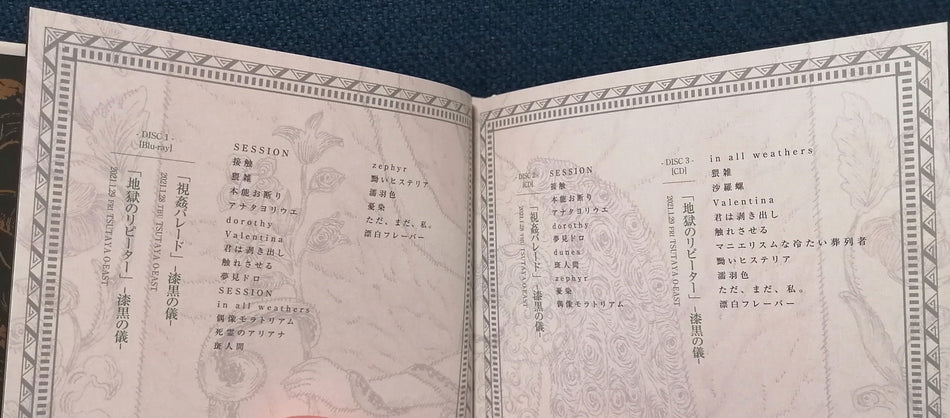 - DISC 1 -
[Blu-ray]
「視姦パレード」-漆黒の儀-
2021.1.28 THU TSUTAYA O-EAST
「地獄のリピーター」-漆黒の儀-
2021.1.29 FRI TSUTAYA O-EAST
SESSION
接触
猥雑
本能お断り
アナタヨリウエ
dorothy
Valentina
君は剥き出し
触れさせる
夢見ドロ
SESSION
in all weathers
偶像モラトリアム
死霊のアリアナ
斑人間
zephyr
黝いヒステリア
濡羽色
憂染
ただ、まだ、私。
漂白フレーバー
- DISC 2 -
[CD]
「視姦パレード」-漆黒の儀-
2021.1.28 THU TSUTAYA O-EAST
SESSION
接触
本能お断り
アナタヨリウエ
dorothy
夢見ドロ
dunes
斑人間
zephyr
憂染
偶像モラトリアム
- DISC 3 -
[CD]
「地獄のリピーター」-漆黒の儀-
2021.1.29 FRI TSUTAYA O-EAST
in all weathers
猥雑
沙羅螺
Valentina
君は剥き出し
触れさせる
マニエリスムな冷たい葬列者
黝いヒステリア
濡羽色
ただ、まだ、私。
漂白フレーバー